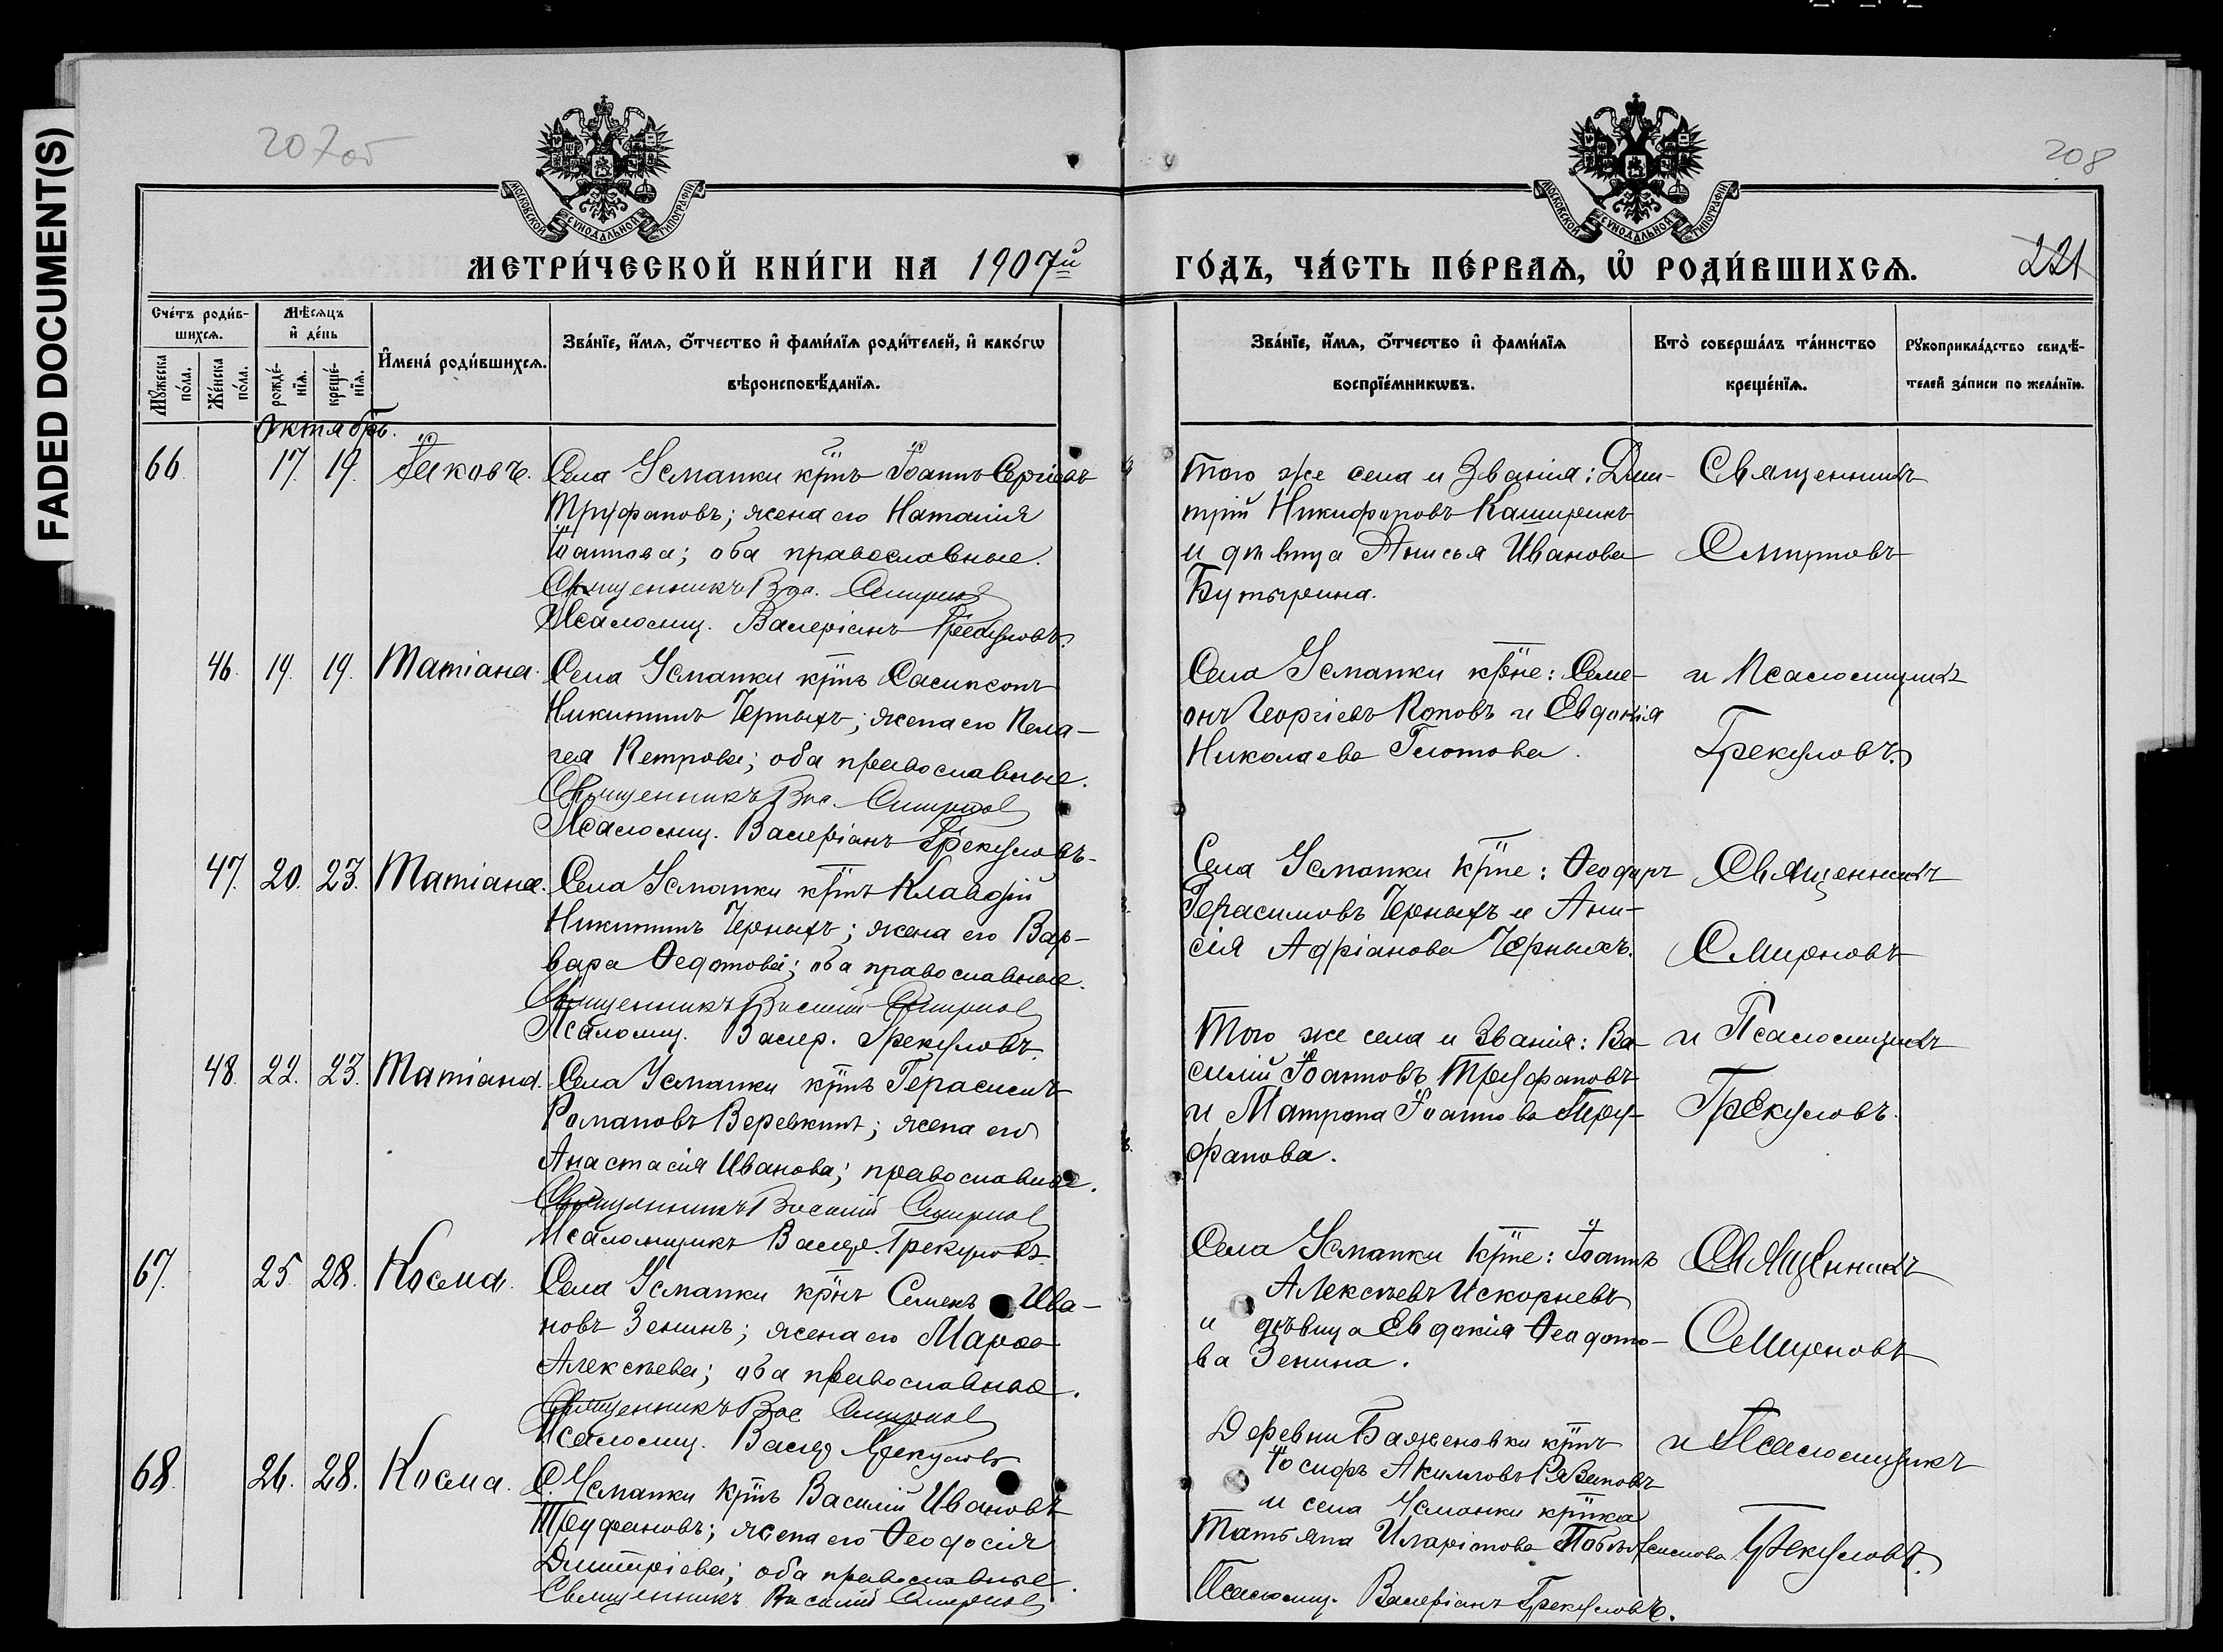 FADED DOCUMENT(S)
207об
208
МОСКОВСКОЙ СѴНОДАЛЬНОЙ ТИПОГРАФІИ
МОСКОВСКОЙ СѴНОДАЛЬНОЙ ТИПОГРАФІИ
МЕТРИ́ЧЕСКОЙ КНИ́ГИ НА 1907й
ГО́ДЪ, ЧА́СТЬ ПЕ́РВАѦ, Ѡ҆ РОДИ́ВШИХСѦ.
221
Сче́тъ роди́в-
шихсѧ.
Мꙋ́жеска по́ла.
Же́нска по́ла.
Мѣ́сѧцъ
и҆ де́нь
рожде́-
нїѧ.
креще́-
нїѧ.
И҆мена̀ роди́вшихсѧ.
Зва́нїе, и҆́мѧ, ѻ҆́тчество и҆ фами́лїѧ роди́телей, и҆ како́гѡ
вѣроисповѣ́данїѧ.
Зва́нїе, и҆́мѧ, ѻ҆́тчество и҆ фами́лїѧ
воспрїе́мникѡвъ.
Кто̀ соверша́лъ та́инство
креще́нїѧ.
Рꙋкоприкла́дство свидѣ́-
телей за́писи по жела́нїю.
Октябрь.
66. 17. 19. Іаковъ. Села Усманки кр̃нъ Іоаннъ Сергіевъ
Труфановъ; жена его Наталія
Іоаннова; оба православные.
Священникъ Вас. Смирнов
Псаломщ. Валеріанъ Грекуловъ.
Того же села и званія: Дми-
трій Никифоровъ Каширинъ
и дѣвица Анисья Иванова
Бутырина.
Священникъ
Смирновъ
46. 19. 19. Татіана. Села Усманки кр̃нъ Сампсонъ
Никитинъ Черныхъ; жена его Пела-
гея Петрова; оба православные.
Священникъ Вас. Смирнов
Псаломщ. Валеріанъ Грекуловъ
Села Усманки кр̃не: Симе-
онъ Георгіевъ Поповъ и Евдокія
Николаева Глотова.
и Псаломщикъ
Грекуловъ.
47. 20. 23. Татіана. Села Усманки кр̃нъ Клавдій
Никитинъ Черныхъ; жена его Вар-
вара Ѳедотова; оба православные.
Священникъ Василий Смирнов
Псаломщ. Валер. Грекуловъ.
Села Усманки кр̃не: Ѳеодоръ
Герасимовъ Черныхъ и Ани-
сія Адріанова Черныхъ.
Священникъ
Смирновъ
48. 22. 23. Татіана. Села Усманки кр̃нъ Герасимъ
Романовъ Веревкинъ; жена его
Анастасія Иванова; православные.
Священникъ Василий Смирнов
Псаломщикъ Валер. Грекуловъ.
Того же села и званія: Ва-
силій Іоанновъ Труфановъ
и Матрона Іоаннова Тру-
фанова.
и Псаломщикъ
Грекуловъ.
67. 25. 28. Косма. Села Усманки кр̃нъ Семенъ Ива-
новъ Зенинъ; жена его Марѳа
Алексѣева; оба православные.
Священникъ Вас Смирнов
Псаломщ. Валер Грекуловъ
Села Усманки кр̃не: Іоаннъ
Алексѣевъ Искорневъ
и дѣвица Евдокія Ѳеодото-
ва Зенина.
Священникъ
Смирновъ
68. 26. 28. Косма. С. Усманки кр̃нъ Василій Ивановъ
Труфановъ; жена его Ѳеодосія
Димитріева; оба православные.
Священникъ Василий Смирнов
Деревни Баженовки кр̃нъ
Іосифъ Акимовъ
и села Усманки кр̃нка
Татьяна Иларіонова
Псаломщ. Валеріанъ Грекуловъ.
и Псаломщикъ
Грекуловъ.